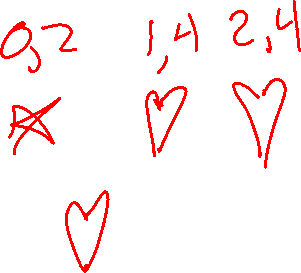 0,2 1,4 2,4